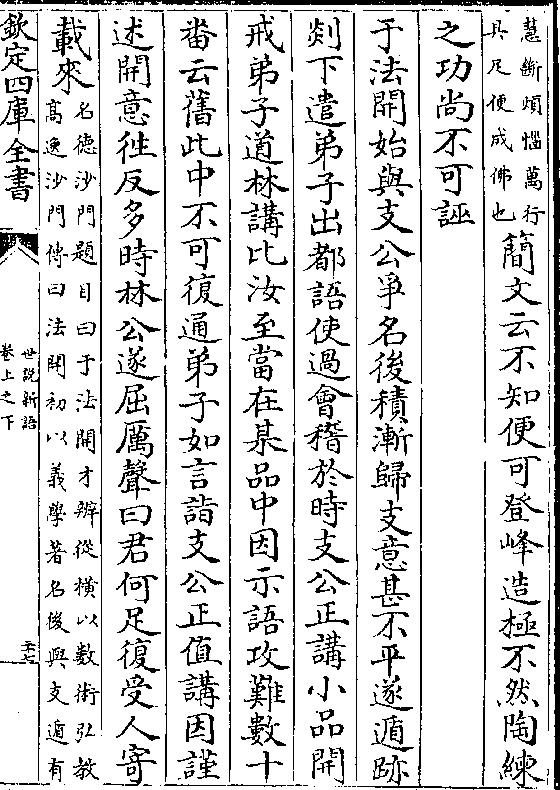 慧斷煩惱萬行
具足便成佛也
簡文云不知便可登峰造極不然陶練
之功尚不可誣
于法開始與支公爭名後積漸歸支意甚不平遂遁跡
剡下遣弟子出都語使過會稽於時支公正講小品開
戒弟子道林講比汝至當在某品中因示語攻難數十
番云舊此中不可復通弟子如言詣支公正值講因謹
述開意徃反多時林公遂屈厲聲曰君何足復受人寄
載來
名德沙門題目曰于法開才辨從橫以數術弘教
高逸沙門傳曰法開初以義學著名後與支遁有
欽定四庫全書
世說新語
卷上之下
二十七